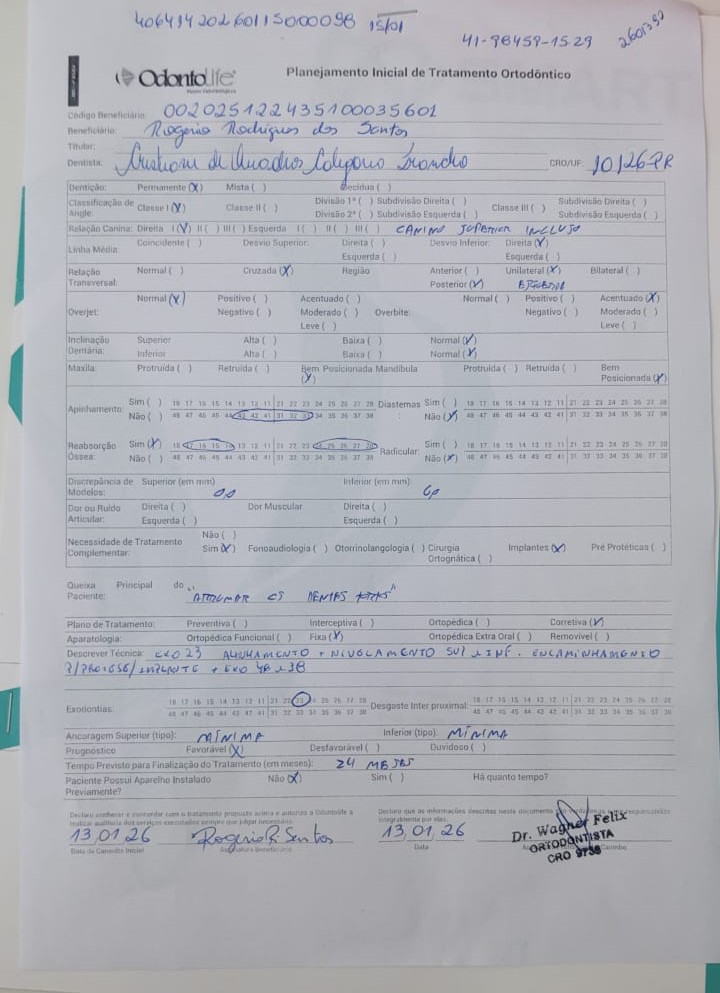 40641420260115000098 15/01
41-98459-1529
2601392
OdontoLife
Planejamento Inicial de Tratamento Ortodôntico
Código Beneficiário: 00202512243510003560​1
Beneficiário: Rogerio Rodrigues dos Santos
Titular:
Dentista: CRO/UF: 10126-PR
Dentição: Permanente (X) Mista ( ) Decídua ( )
Classificação de Angle: Classe I (X) Classe II ( ) Divisão 1ª ( ) Subdivisão Direita ( ) Classe III ( ) Subdivisão Direita ( )
Divisão 2ª ( ) Subdivisão Esquerda ( ) Subdivisão Esquerda ( )
Relação Canina: Direita I (X) II ( ) III ( ) Esquerda I ( ) II ( ) III ( ) CANINO SUPERIOR INCLUSO
Linha Média: Coincidente ( ) Desvio Superior: Direita ( ) Desvio Inferior: Direita (X)
Esquerda ( ) Esquerda ( )
Relação Transversal: Normal ( ) Cruzada (X) Região Anterior ( ) Unilateral (X) Bilateral ( )
Posterior (X)
Overjet: Normal (X) Positivo ( ) Acentuado ( ) Overbite: Normal ( ) Positivo ( ) Acentuado (X)
Negativo ( ) Moderado ( ) Negativo ( ) Moderado ( )
Leve ( ) Leve ( )
Inclinação Dentária: Superior Alta ( ) Baixa ( ) Normal (X)
Inferior Alta ( ) Baixa ( ) Normal (X)
Maxila: Protruída ( ) Retruída ( ) Bem Posicionada (X) Mandíbula Protruída ( ) Retruída ( ) Bem Posicionada (X)
Apinhamento: Sim ( ) 18 17 16 15 14 13 12 11 21 22 23 24 25 26 27 28 Diastemas: Sim ( ) 18 17 16 15 14 13 12 11 21 22 23 24 25 26 27 28
Não ( ) 48 47 46 45 44 43 42 41 31 32 33 34 35 36 37 38 Não (X) 48 47 46 45 44 43 42 41 31 32 33 34 35 36 37 38
Reabsorção Óssea: Sim (X) 18 17 16 15 14 13 12 11 21 22 23 24 25 26 27 28 Radicular: Sim ( ) 18 17 16 15 14 13 12 11 21 22 23 24 25 26 27 28
Não ( ) 48 47 46 45 44 43 42 41 31 32 33 34 35 36 37 38 Não (X) 48 47 46 45 44 43 42 41 31 32 33 34 35 36 37 38
Discrepância de Modelos: Superior (em mm) Inferior (em mm)
Dor ou Ruído Articular: Direita ( ) Dor Muscular Direita ( )
Esquerda ( ) Esquerda ( )
Necessidade de Tratamento Complementar: Não ( )
Sim (X) Fonoaudiologia ( ) Otorrinolangologia ( ) Cirurgia Ortognática ( ) Implantes (X) Pré Protéticas ( )
Queixa Principal do Paciente: "ARRUMAR OS DENTES"
Plano de Tratamento: Preventiva ( ) Interceptiva ( ) Ortopédica ( ) Corretiva (X)
Aparatologia: Ortopédica Funcional ( ) Fixa (X) Ortopédica Extra Oral ( ) Removível ( )
Descrever Técnica: EXO 23 ALINHAMENTO + NIVELAMENTO SUP E INF. ENCAMINHAMENTO
P/PROTESE/IMPLANTE + EXO 48 E 38
Exodontias: 18 17 16 15 14 13 12 11 21 22 23 24 25 26 27 28 Desgaste Inter proximal: 18 17 16 15 14 13 12 11 21 22 23 24 25 26 27 28
48 47 46 45 44 43 42 41 31 32 33 34 35 36 37 38 48 47 46 45 44 43 42 41 31 32 33 34 35 36 37 38
Ancoragem Superior (tipo): MÍNIMA Inferior (tipo): MÍNIMA
Prognóstico Favorável (X) Desfavorável ( ) Duvidoso ( )
Tempo Previsto para Finalização do Tratamento (em meses): 24 MESES
Paciente Possui Aparelho Instalado Previamente? Não (X) Sim ( ) Há quanto tempo?
Declaro conhecer e concordar com o tratamento proposto acima e autorizo a Odontolife a
realizar auditoria dos serviços executados sempre que julgar necessário.
Declaro que as informações descritas neste documento
integralmente por elas.
13/01/26 Rogerio R Santos 13/01/26
Dr. Wagner Felix
ORTODONTISTA
CRO 9738
Assinatura Beneficiário Data